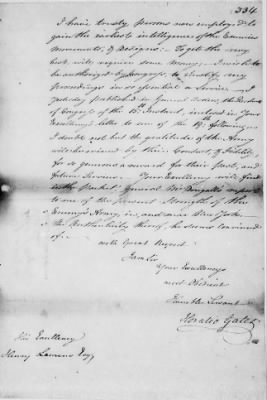 334.
I have trusty persons now employ'd to
gain the earliest intelligence of the Enemies
movements, & Designs: To get the very
best, will require some Money; I wish to
be authorized by Congress, to
proceedings in so essential a Service. I
Yesterday published in General Orders, the
of Congress of the 15th Instant, inclosed in Your
letter to me of the
I doubt not but the gratitude of the Army
will be evinced by their Conduct, & Fidelity,
for so generous a reward for their past, and
future Services. Your Excellency will find
in the packet General McDougall's report
to me of the present Strength of the
Enemy's Army, in, and near New York.
The Authenticity thereof, he seems convinced
of.
with Great Respect
I am Sir
Your Excellency's
most Obedient
Humble Servant
Horatio Gates
His Excellency
Henry Laurens Esq;